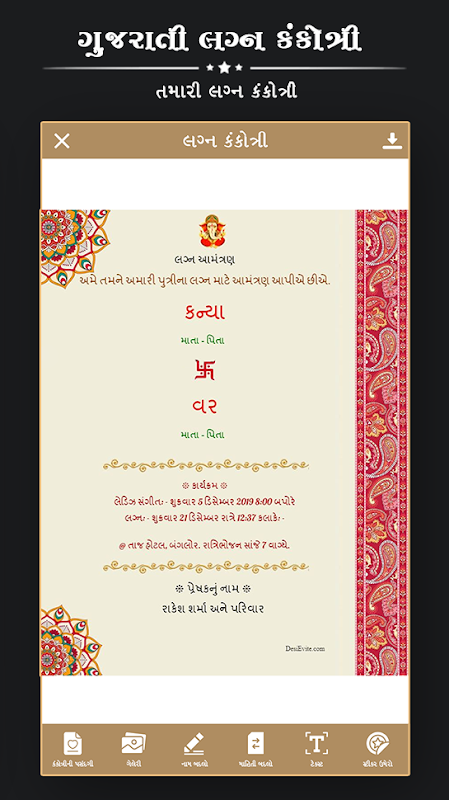 ગુજરાતી લગ્ન કંકોત્રી
તમારી લગ્ન કંકોત્રી
લગ્ન કંકોત્રી
લગ્ન આમંત્રણ
અમે તમને અમારી પુત્રીના લગ્ન માટે આમંત્રણ આપીએ છીએ.
કન્યા
માતા - પિતા
વર
માતા - પિતા
❊ કાર્યકમ ❊
લેડિઝ સંગીત: - શુક્રવાર 5 ડિસેમ્બર 2019 8:00 બપોરે
લગ્ન: - શુક્રવાર 21 ડિસેમ્બર રાત્રે 12:37 કલાકે: -
@ તાજ હોટલ, બંગલોર. રાત્રિભોજન સાંજે 7 વાગ્યે.
❊ પ્રેષકનું નામ ❊
રાકેશ શર્મા અને પરિવાર
DesiEvite.com
કંકોત્રીની પસંદગી ગેલેરી નામ બદલો માહિતી બદલો ટેક્સ્ટ સ્ટીકર ઉમેરો